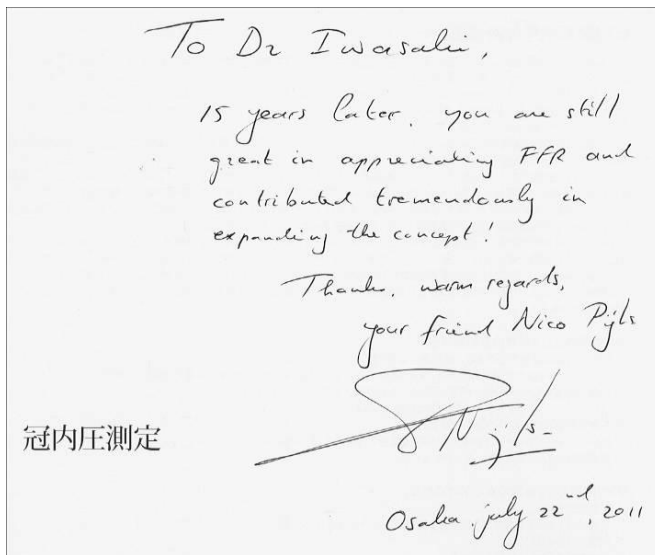 To Dr Iwasaki,
15 years later, you are still
great in appreciating FFR and
contributed tremendously in
expanding the concept!
Thanks, warm regards,
your friend Nico Pijls
冠内圧測定
NPijls
Osaka, july 22nd, 2011